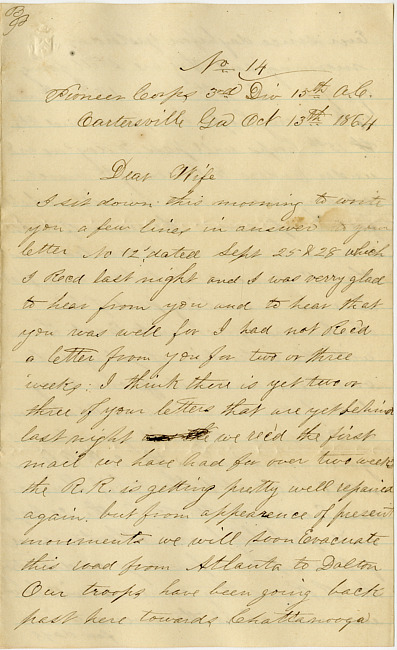 No 14
Pioneer Corps 3rd Div 15th A.C.
Cartersville Ga Oct 13th 1864
Dear Wife
I sit down this morning to write
you a few lines in answer to your
letter No 12 dated Sept 25 & 28 which
I Recd last night and I was verry glad
to hear from you and to hear that
you was well for I had not Recd
a letter from you for two or three
weeks: I think there is yet two or
three of your letters that are yet behind
last night we recd the first
mail we have had for over two weeks
the R.R. is getting pretty well repaired
again. but from appearence of present
movements we will soon Evacuate
this road from Atlanta to Dalton
Our troops have been going back
past here towards Chattanooga